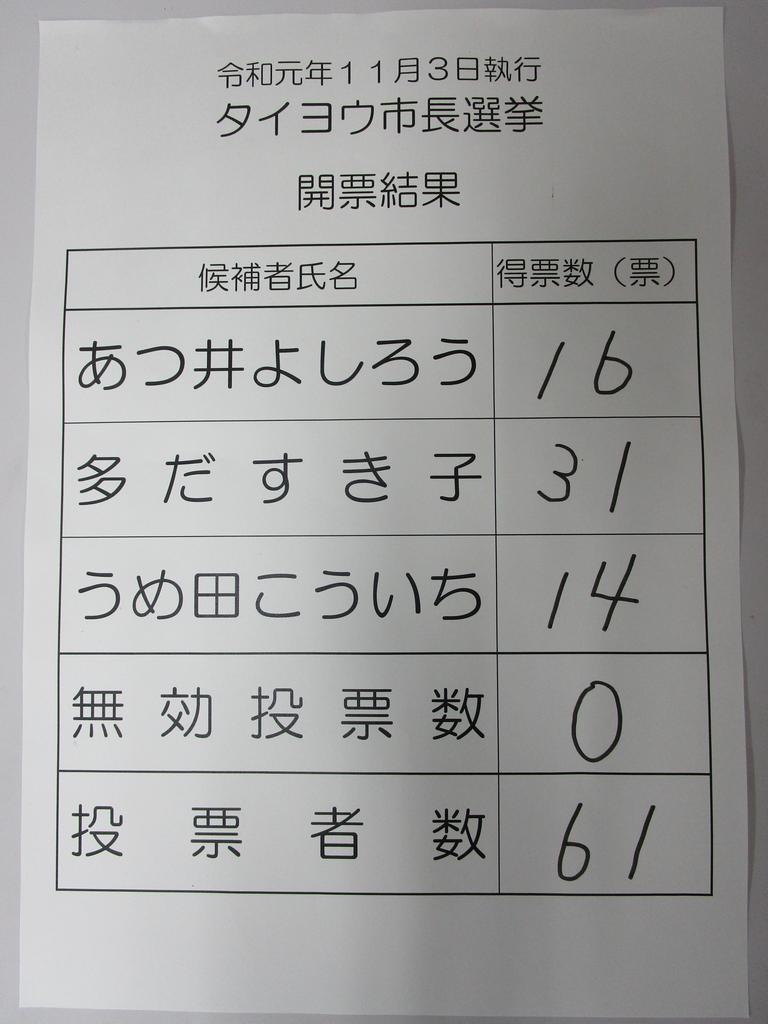 令和元年１１月３日執行
タイヨウ市長選挙
開票結果
候補者氏名 得票数（票）
あつ井よしろう 16
多だすき子 31
うめ田こういち 14
無効投票数 0
投票者数 61